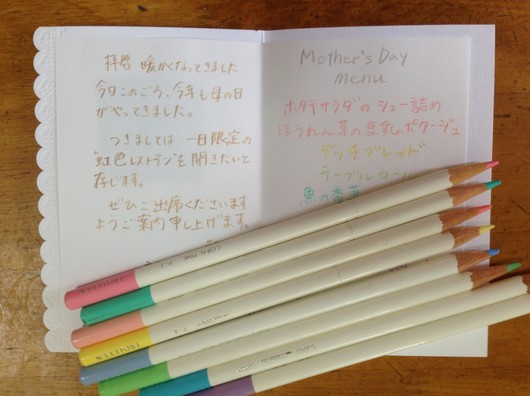 拝啓 暖かくなってきました
今日このごろ、今年も母の日
がやってきました。
つきましては 一日限定の
"虹色レストラン"を開きたいと
存じます。
ぜひご出席くださいます
ようご案内申し上げます。
Mother's Day
menu
ホタテサラダのシュー詰め
ほうれん草の豆乳ポタージュ
ダッチブレッド
テーブルロール
魚の香草